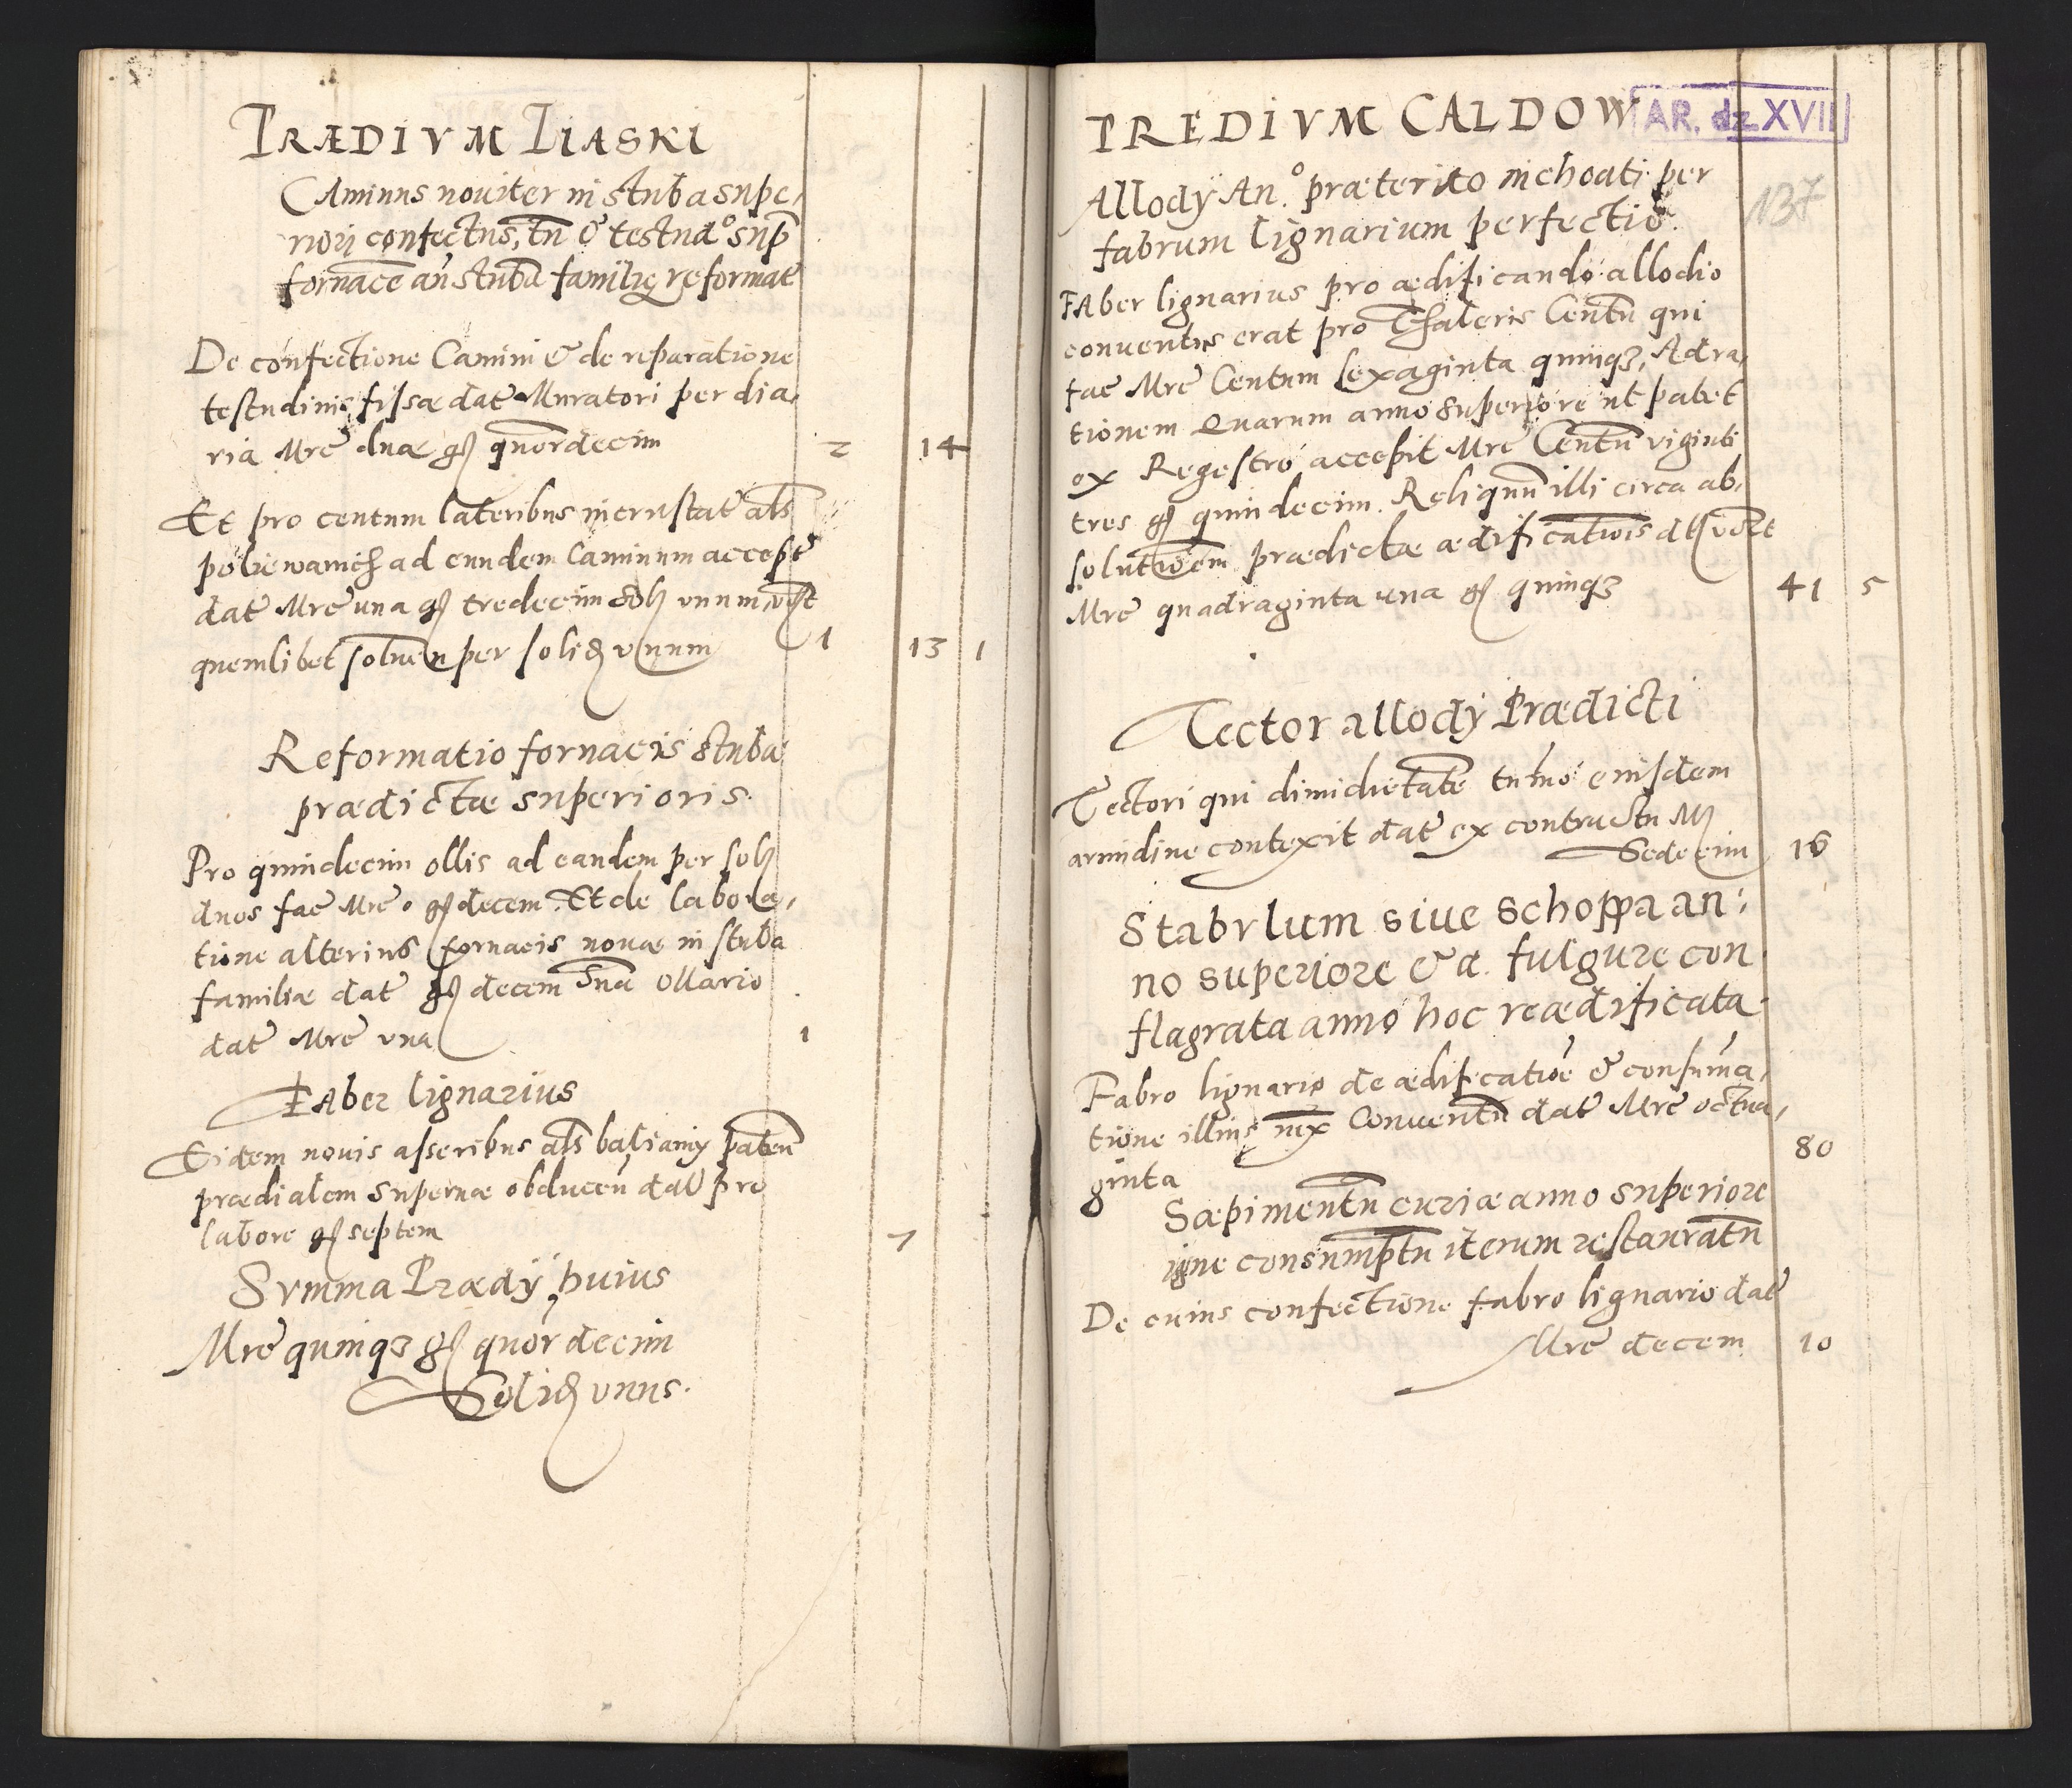 PRÆDIVM LIASKI
CAminus nouiter in stuba supe,
riori confectus, tñ & testud° sup̃
fornacẽ añ stubã familiȩ reformat̃
De confectione Camini & de reparatione
testudinis fissæ dat̃ Muratori per dia,
ria Mrẽ duæ gs̃ quordecim 2 14
Et pro centum lateribus incrustat̃ als̃
polewanich ad eundem Caminum accept̃
dat̃ Mrẽ una gs̃ tredecim Sol̃ unum, vz̃t
quemlibet soluen̄ per solid̃ vnum 1 13 1
Reformatio fornacis stubæ
prædictæ superioris.
Pro quindecim ollis ad eandem per sol̃
duos fac̃ Mrẽ 0 gs̃ decem. Et de labora,
tione alterius fornacis nouæ in stuba
familiæ dat̃ gs̃ decem Sm̃a Ollario
dat̃ Mrẽ vna 1
FAber lignarius
Eidem nouis asseribus als̃ baliamy paten̄
prædialem supernæ obducen̄ dat̃ pro
labore gs̃ septem 7
SVmma Prædÿ huius
Mrẽ quinqꝫ gs̃ quordecim
Solid̃ vnus.
PREDIVM CALDOW
AR. dz XVII
137
Allodÿ An.° præterito inchoati per
fabrum lignarium perfectio.
FAber lignarius pro ædificando allodio
conuentus erat pro Thaleris Centũ qui
fac̃ Mrẽ Centum sexaginta quinqꝫ, Ad ra,
tionem Quarum anno superiore ut patet
ex Regestro accepit Mrẽ Centũ viginti
tres gs̃ quindecim. Reliquũ illi circa ab,
solutiõem prædictæ ædificatiõis dt̃ vz̃t
Mrẽ quadraginta una gs̃ quinqꝫ 41 5
Tector allodÿ Prædicti
Tectori qui dimidietatẽ eiusdem
arundine contexit dat̃ ex contractu Ms̃
Sedecim 16
StabVlum siue schoppa an:
no superiore & a. fulgure con
flagrata anno hoc reædificata
Fabro lignario de ædificatiõe & consum̃a,
tione illius iux̃ Conuentũ dat̃ Mrẽ octua,
ginta 80
Sæpimentũ curiæ anno superiore
igne consumptũ iterum restauratũ
De cuius confectione fabro lignario dat̃
Mrẽ decem 10